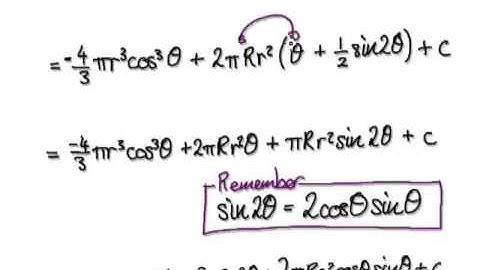 = -4/3 πr³cos³θ + 2πRr²(θ + 1/2 sin2θ) + c
= -4/3 πr³cos³θ + 2πRr²θ + πRr²sin2θ + c
Remember
sin2θ = 2cosθsinθ